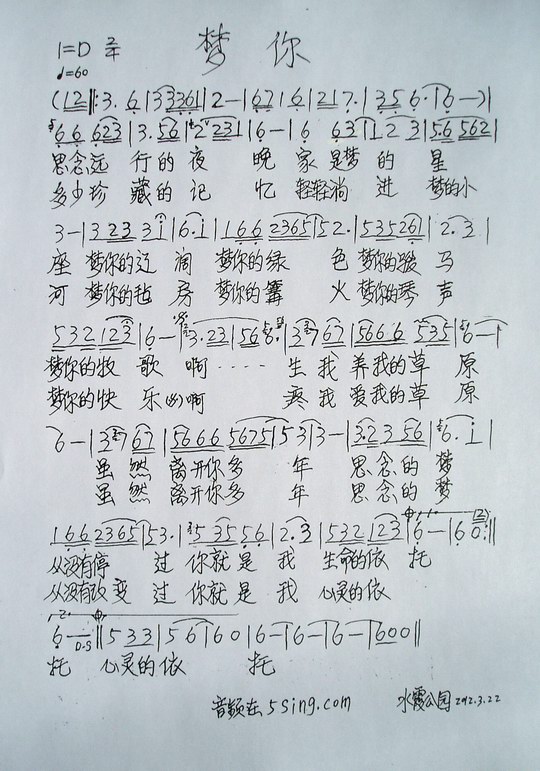 梦 你
1=D 2/4
♩=60
(12‖:3. 6|33361|2—|67 16|217.|356 6·|6—)|
66 623|3.56|2 231|6—|6 631|12 3|56 562|
思念远 行的夜 晚 家是梦的 星
多少珍 藏的记 忆 轻轻淌 进 梦的小
3—|323 3i|6.i|166 2365|52.|535261|2.3|
座 梦你的辽 阔 梦你的绿 色 梦你的骏 马
河 梦你的毡 房 梦你的篝 火 梦你的琴 声
532 123|6—|3.23|566.|3 67|5666 535|6—|
梦你的牧 歌 啊 ···· 生 我 养我的草 原
梦你的快 乐 啊 疼 我 爱我的草 原
6—|3 67|5666 5675|53|3—|3.2356|6.i|
虽 然 离开你多 年 思 念的 梦
虽 然 离开你多 年 思 念的 梦
166 2365|53.|535 56|2.3|532 123|6—|60:‖
从没有停 过 你就是 我 生命的依 托
从没有改变 过 你就是 我 心灵的依
6—D.S‖533|56|60|6—|6—|6—|600‖
托 心灵的依 托
音频在5sing.com 水霞公园2012.3.22